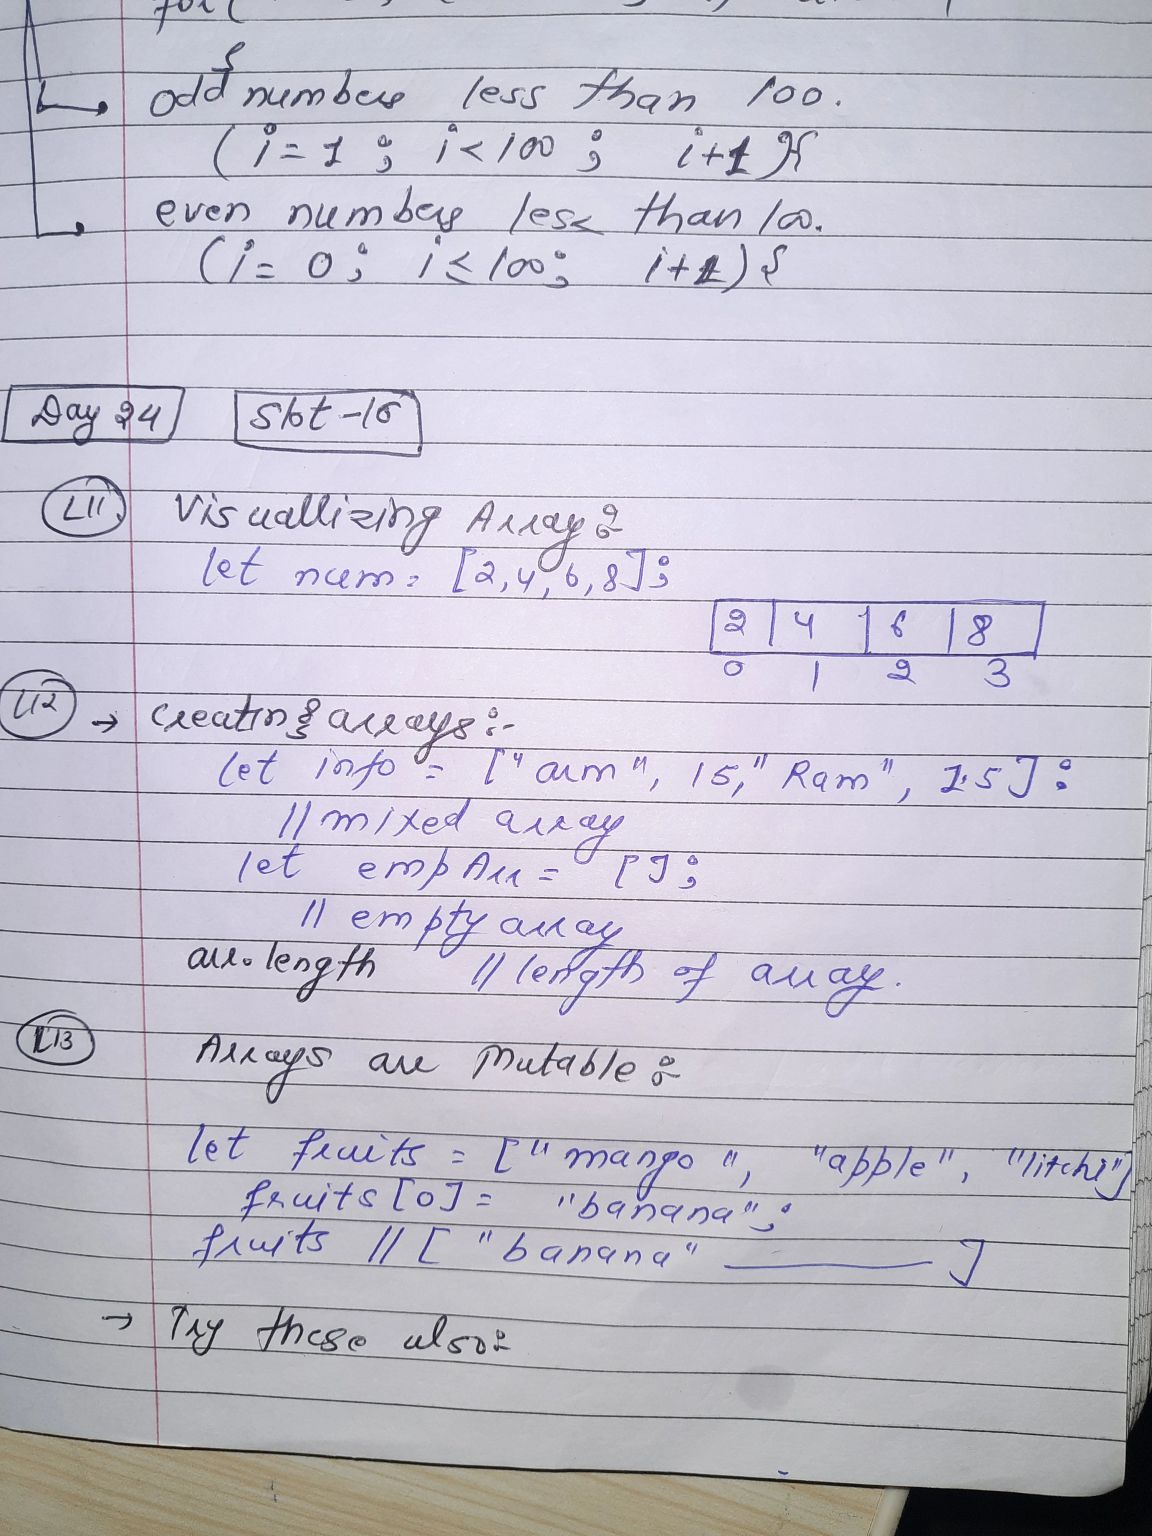 for(
{
odd numbers less than 100.
(i=1 ; i<100 ; i+1){
even numbers less than 100.
(i= 0 ; i≤100; i+1){
Day 24 Slot-16
L11 Visuallizing Array:-
let num = [2,4,6,8];
2 4 6 8
0 1 2 3
L12 → Creating arrays:-
let info = ["arm", 15, "Ram", 1.5];
// mixed array
let empArr = [];
// empty array
arr.length // length of array.
L13 Arrays are Mutable:-
let fruits = ["mango", "apple", "litchi"]
fruits[0] = "banana";
fruits // [ "banana" ______ ]
→ Try these also:-